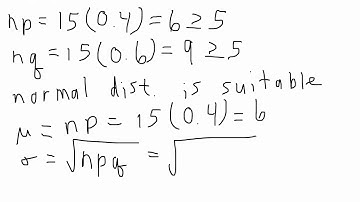 np = 15(0.4) = 6 ≥ 5
nq = 15(0.6) = 9 ≥ 5
normal dist. is suitable
μ = np = 15(0.4) = 6
σ = √npq = √